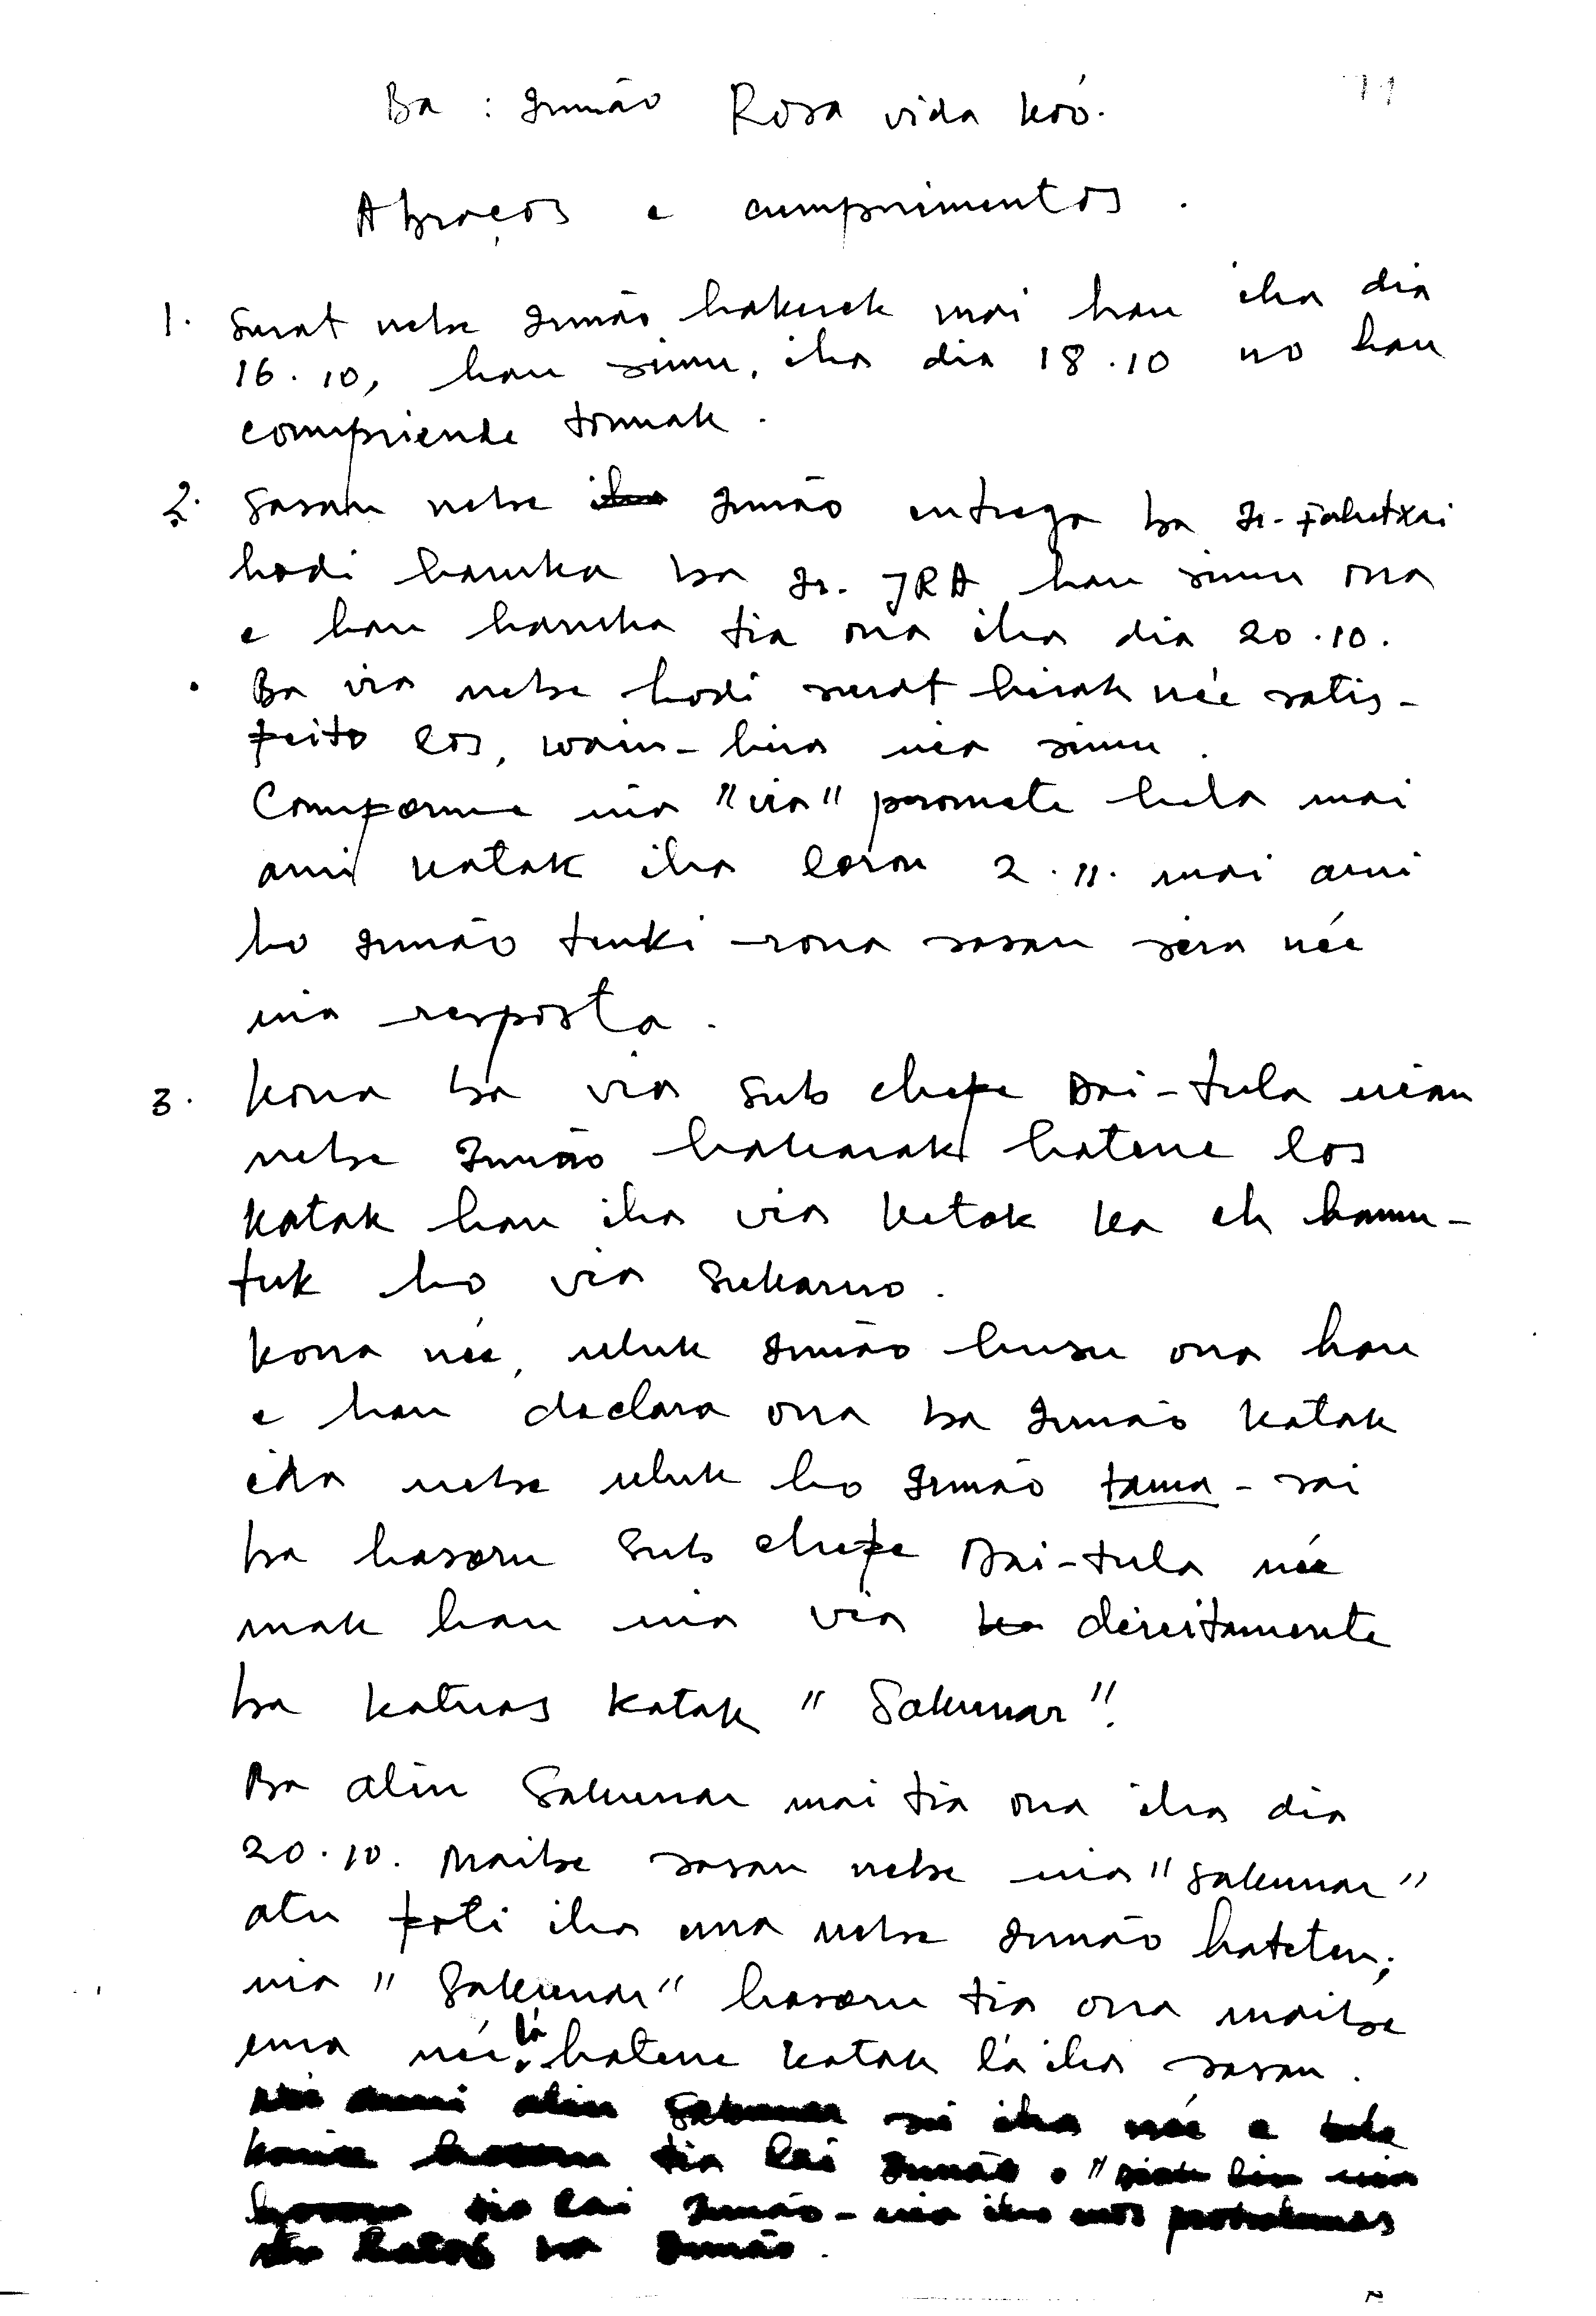 Ba : Irmão Rosa vida koó.
Abraços e cumprimentos.
1. Surat nebe Irmão hakerek mai hau iha dia
16.10, hau simu, iha dia 18.10 no hau
compriende tomak.
2. Sasan nebe Irmão entrega ba Ir. Fahetxai
hodi haruka ba Ir. JRA hau simu ona
e hau haruka tia ona iha dia 20.10.
Ba via nebe hodi surat hirak née satis-
feito los, wain-hira nia simu.
Comforme nia "via" promete hela mai
ami katak iha loron 2.11. mai ami
ho Irmão tenki rona sasan sira née
nia resposta.
3. Kona ba via Sub chefe Dai-tula nian
nebe Irmão hakarak hatene los
katak hau iha via ketak ka eh hamu-
tuk ho via Sukarno.
Kona née, uluk Irmão husu ona hau
e hau declara ona ba Irmão katak
ida nebe uluk ho Irmão tama-sai
ba hasoru Sub chefe Dai-tula née
mak hau nia via direitamente
ba katuas katak "Sakunar".
Ba alin Sakunar mai tia ona iha dia
20.10. Maibe sasan nebe nia "Sakunar"
atu foti iha ema nebe Irmão hateten;
nia "Sakunar" hasoru tia ona maibe
ema née lá hatene katak lá iha sasan.